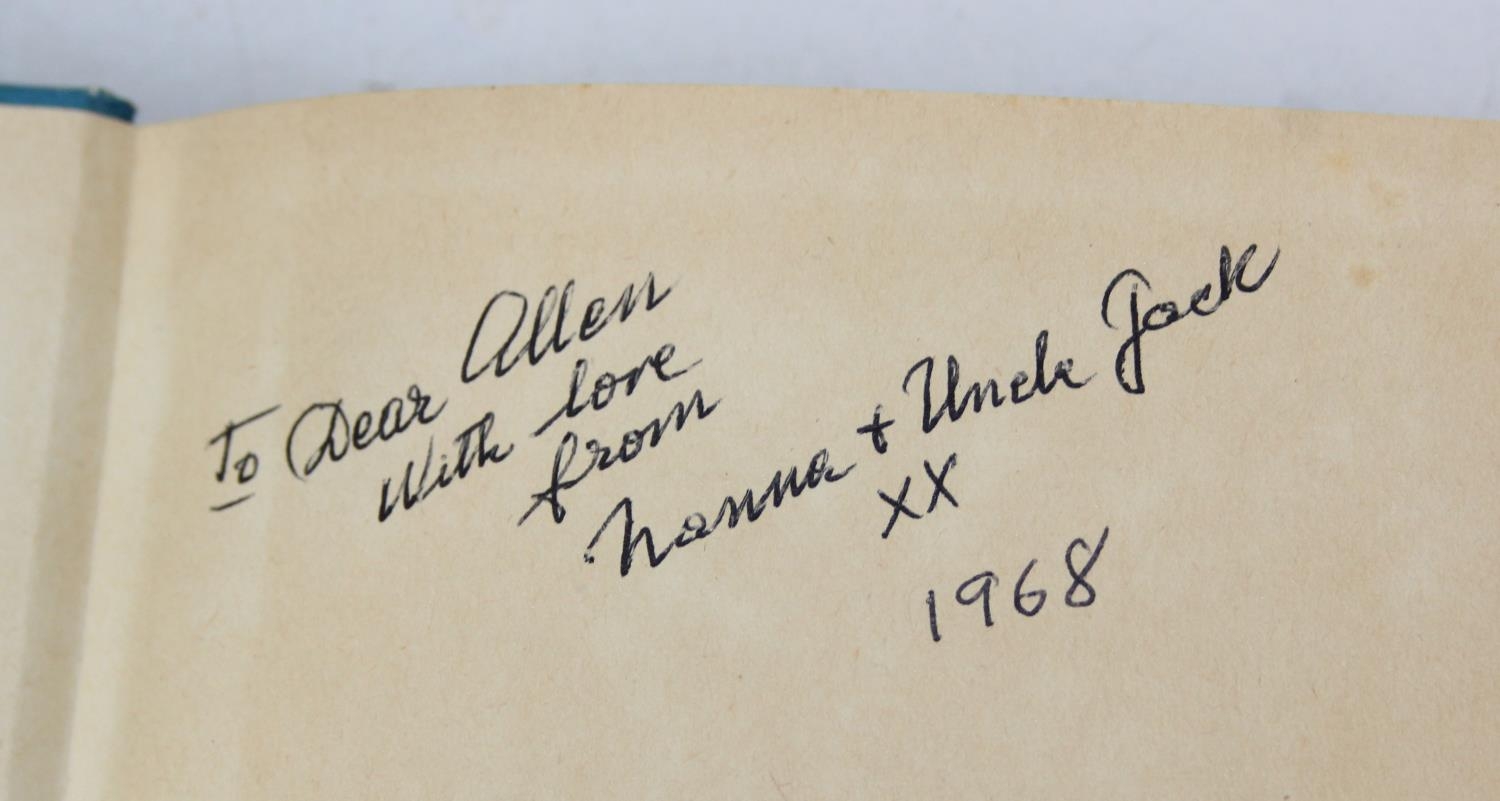 To Dear Allen
With love
from
Nanna + Uncle Jack
XX
1968